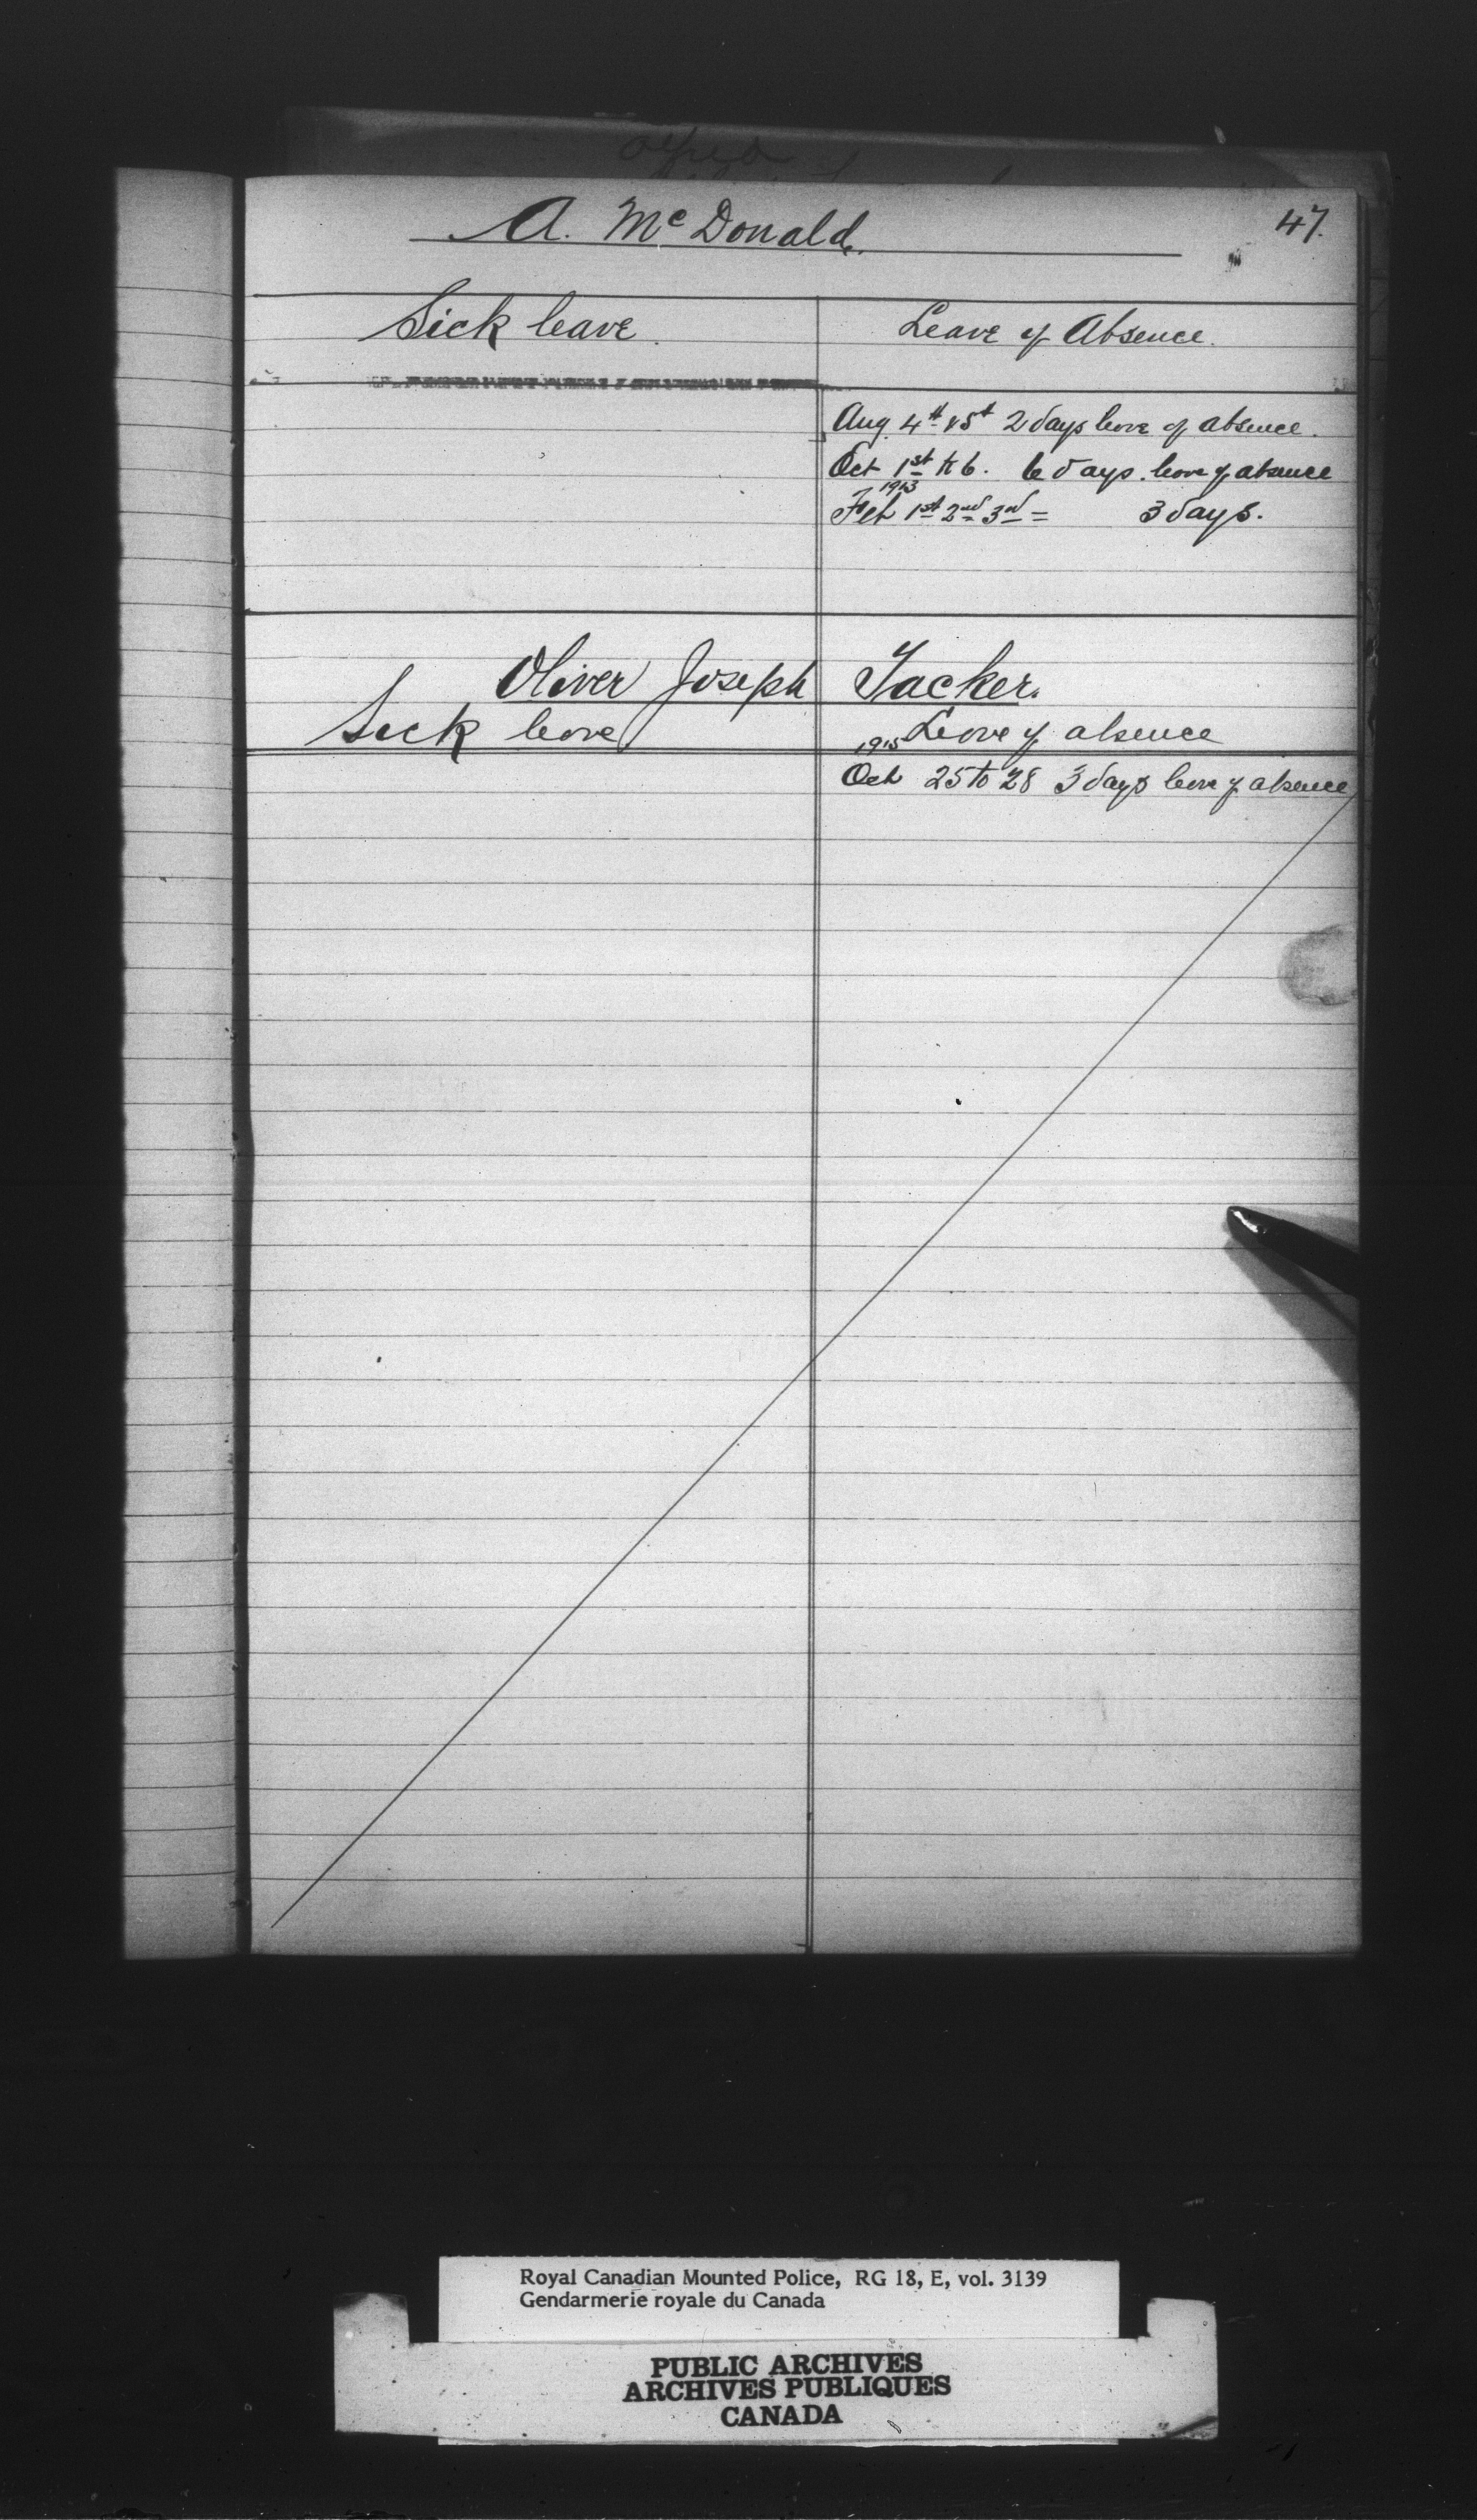 A. McDonald.
47.
Sick leave.
Leave of Absence.
Aug. 4th & 5th 2 days leave of absence.
Oct 1st to 6. 6 days. leave of absence
1913
Feb 1st 2nd 3rd = 3 days.
Oliver Joseph Tacker.
Sick leave
1915 Leave of absence
Oct 25 to 28 3 days leave of absence
Royal Canadian Mounted Police, RG 18, E, vol. 3139
Gendarmerie royale du Canada
PUBLIC ARCHIVES
ARCHIVES PUBLIQUES
CANADA